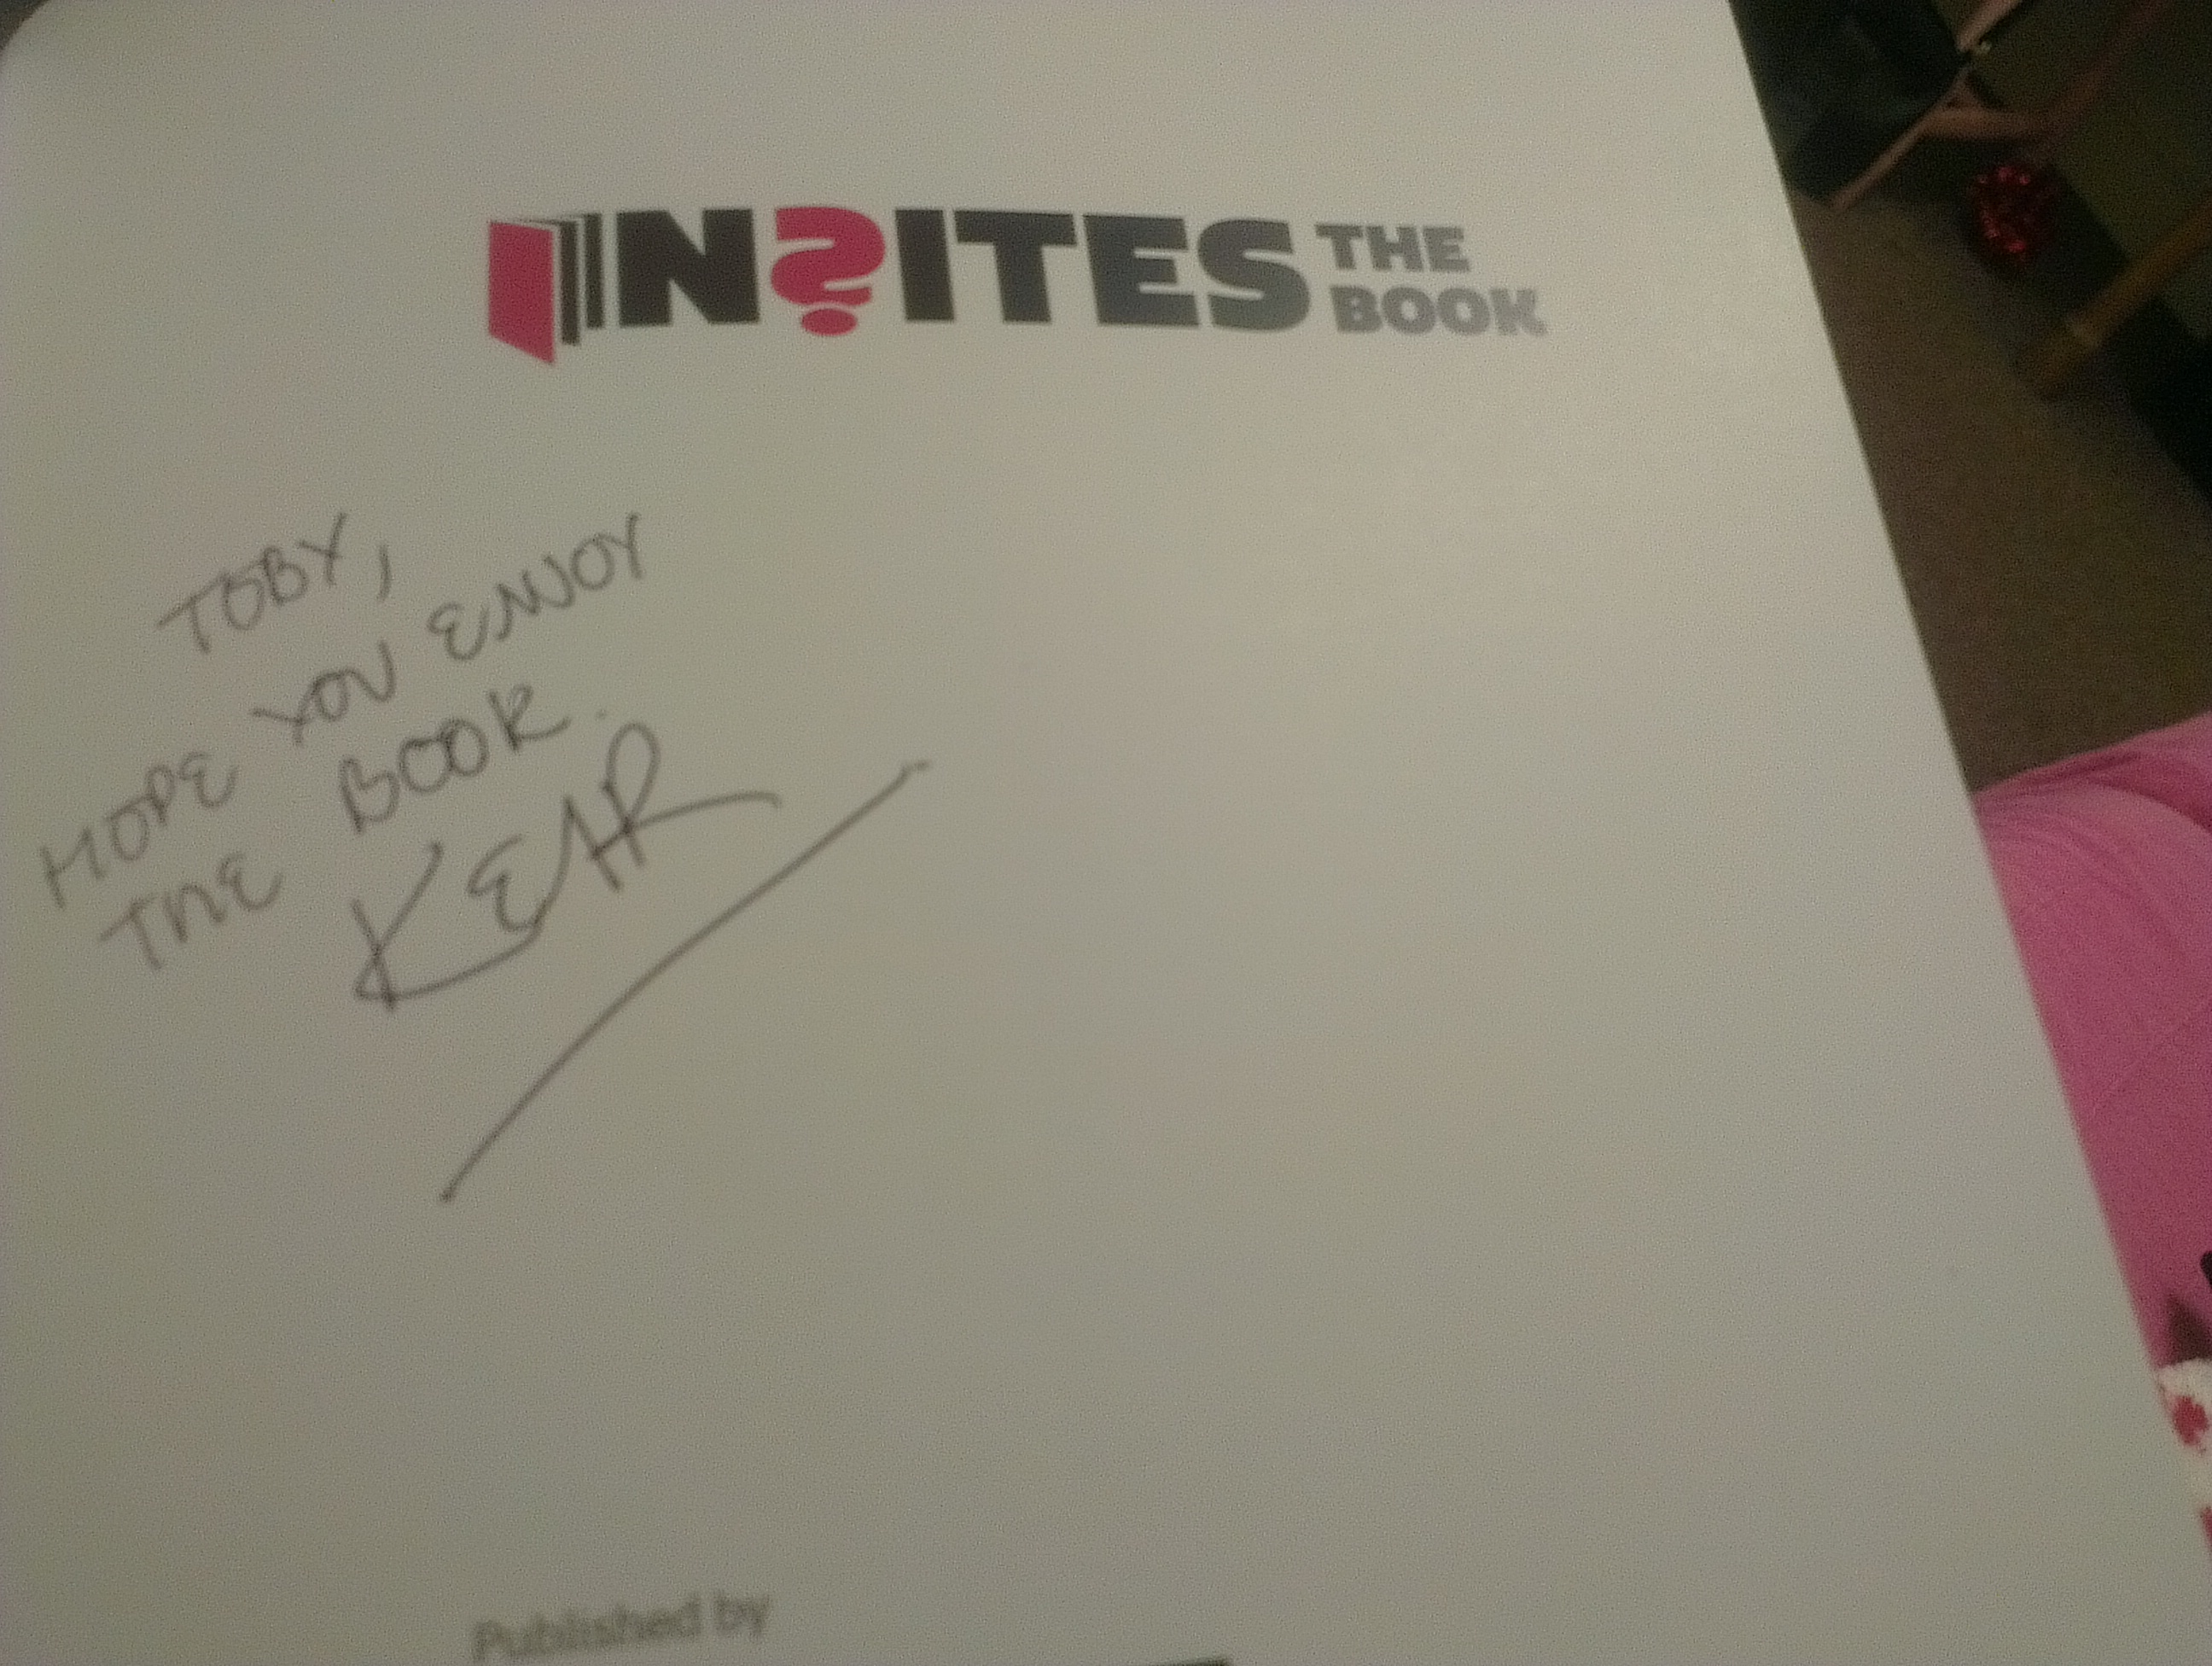 INSITES THE BOOK
TOBY,
HOPE YOU ENJOY
THE BOOK.
KEIR
Published by